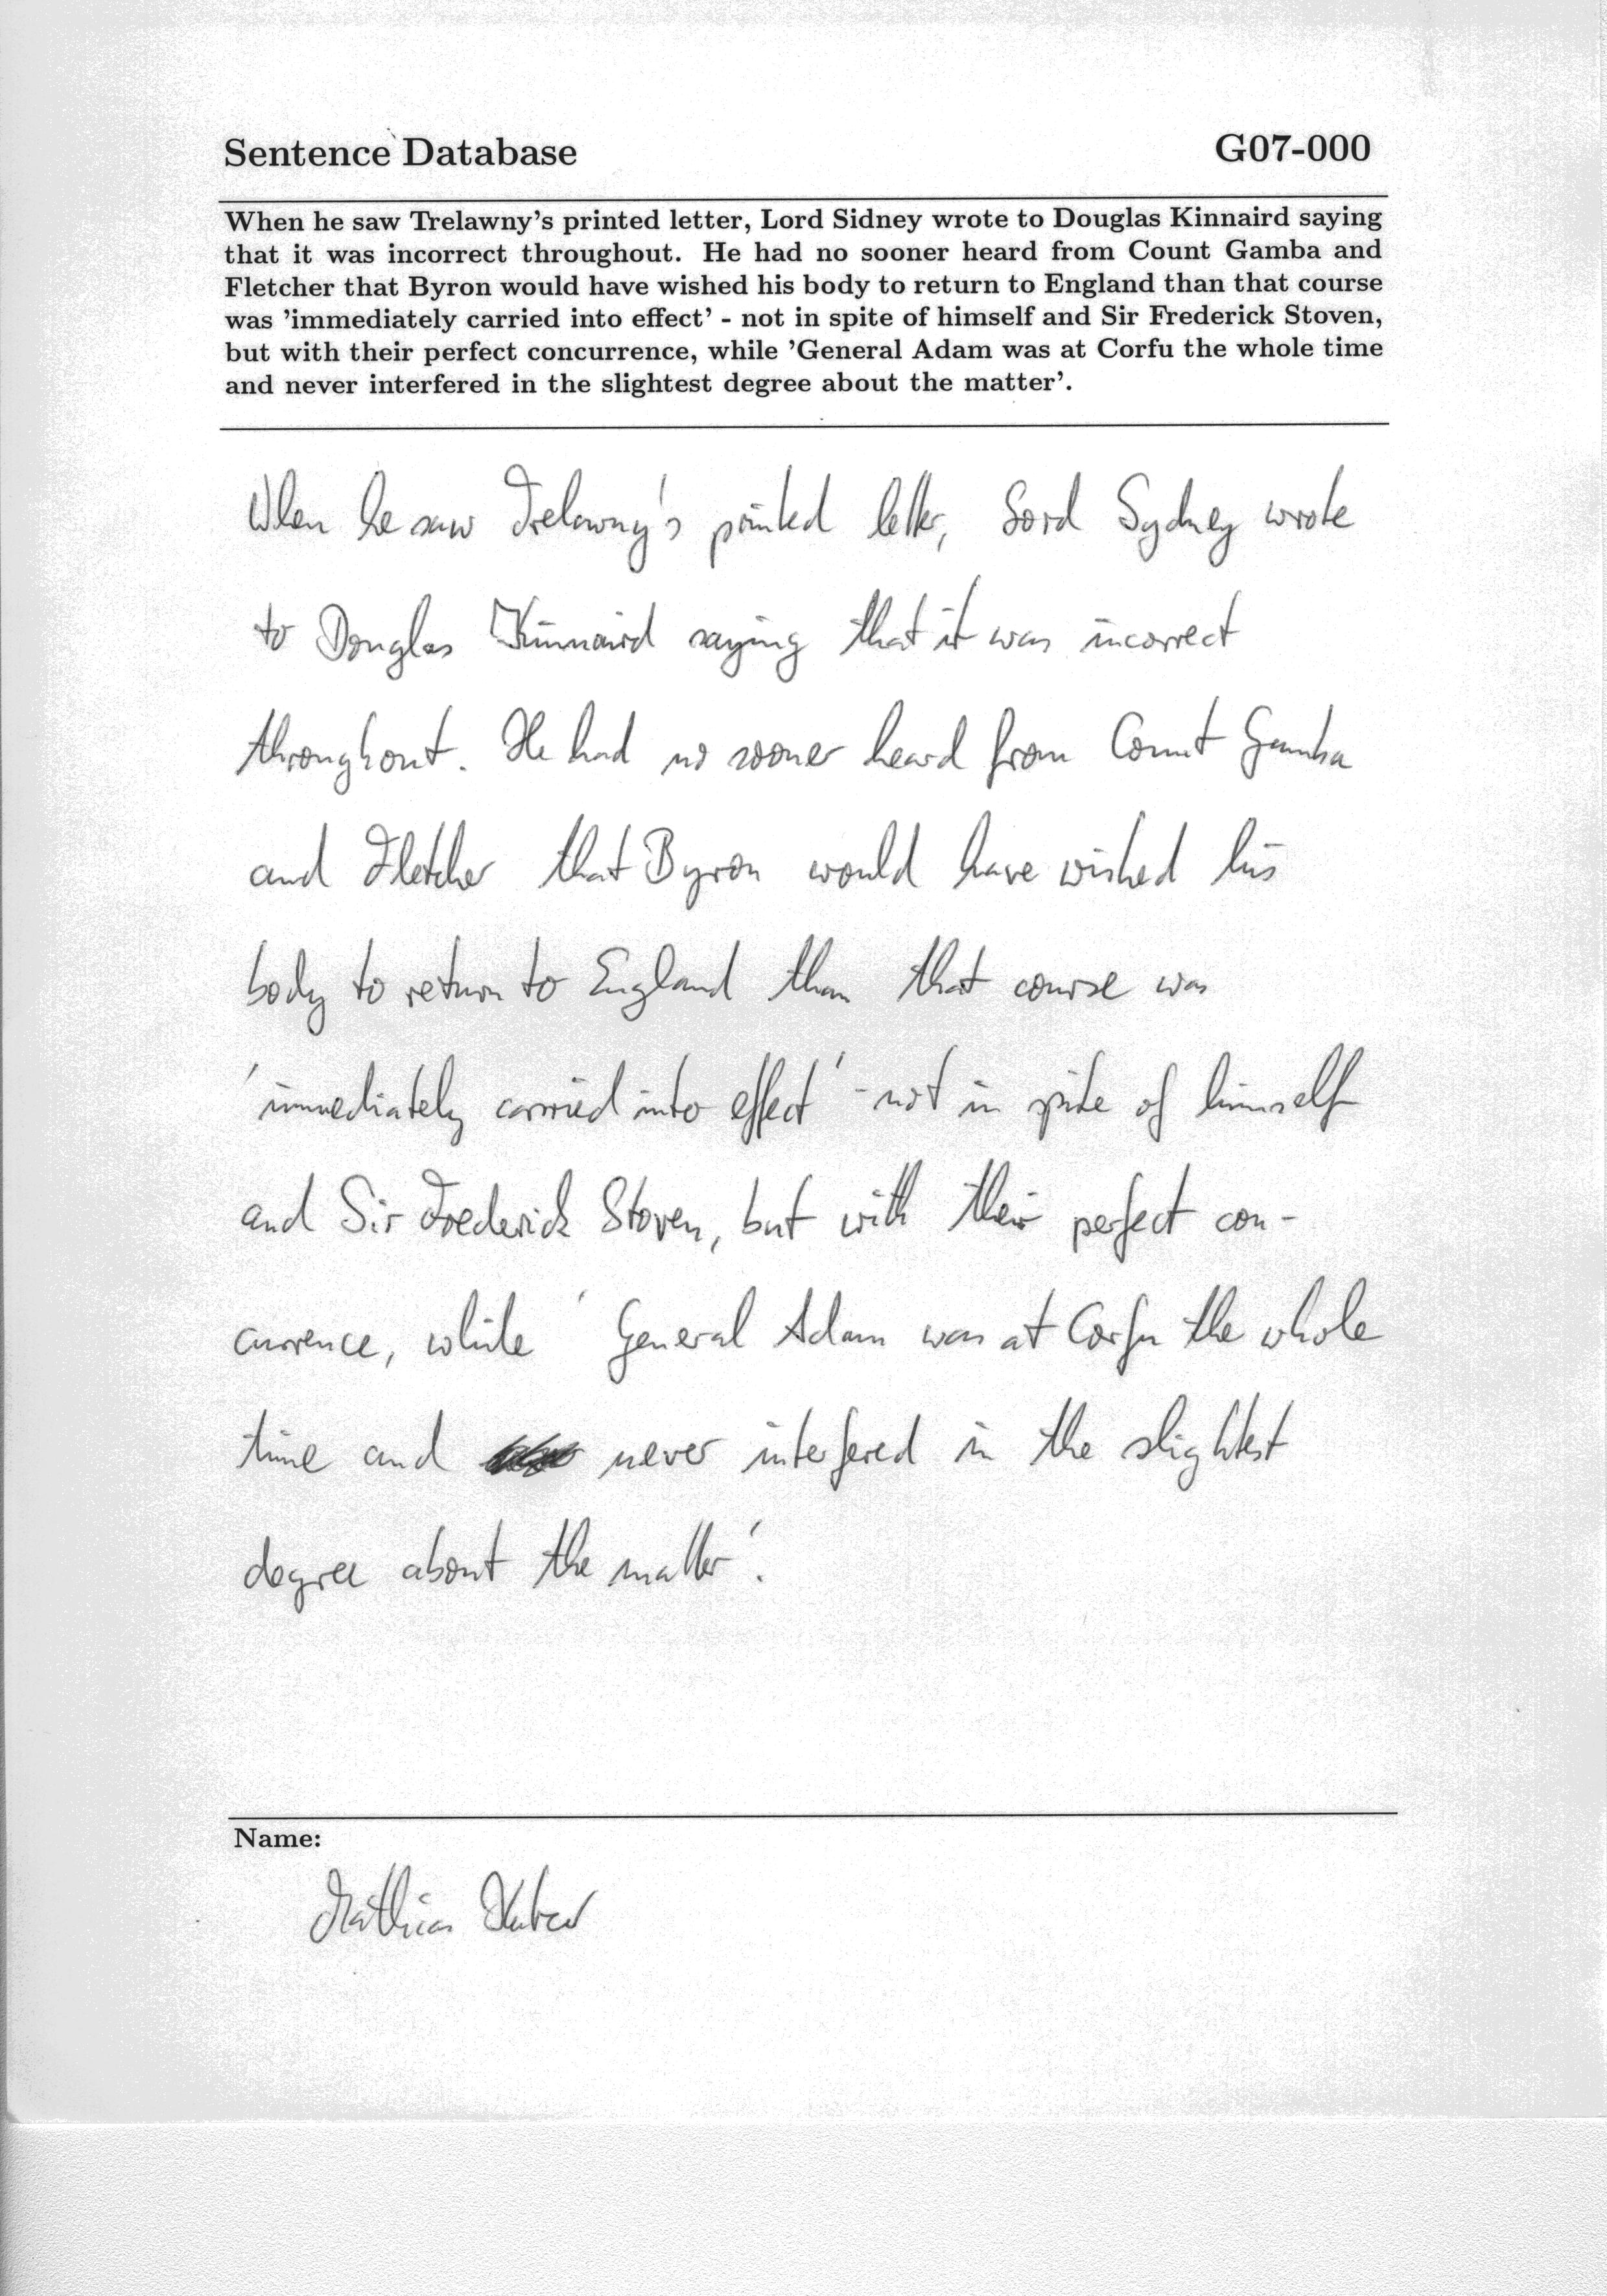 Sentence Database G07-000
When he saw Trelawny's printed letter, Lord Sidney wrote to Douglas Kinnaird saying
that it was incorrect throughout. He had no sooner heard from Count Gamba and
Fletcher that Byron would have wished his body to return to England than that course
was 'immediately carried into effect' - not in spite of himself and Sir Frederick Stoven,
but with their perfect concurrence, while 'General Adam was at Corfu the whole time
and never interfered in the slightest degree about the matter'.
When he saw Trelawny's printed letter, Lord Sydney wrote
to Douglas Kinnaird saying that it was incorrect
throughout. He had no sooner heard from Count Gamba
and Fletcher that Byron would have wished his
body to return to England than that course was
'immediately carried into effect' - not in spite of himself
and Sir Frederick Stoven, but with their perfect con-
currence, while 'General Adam was at Corfu the whole
time and never interfered in the slightest
degree about the matter'.
Name:
Mathias